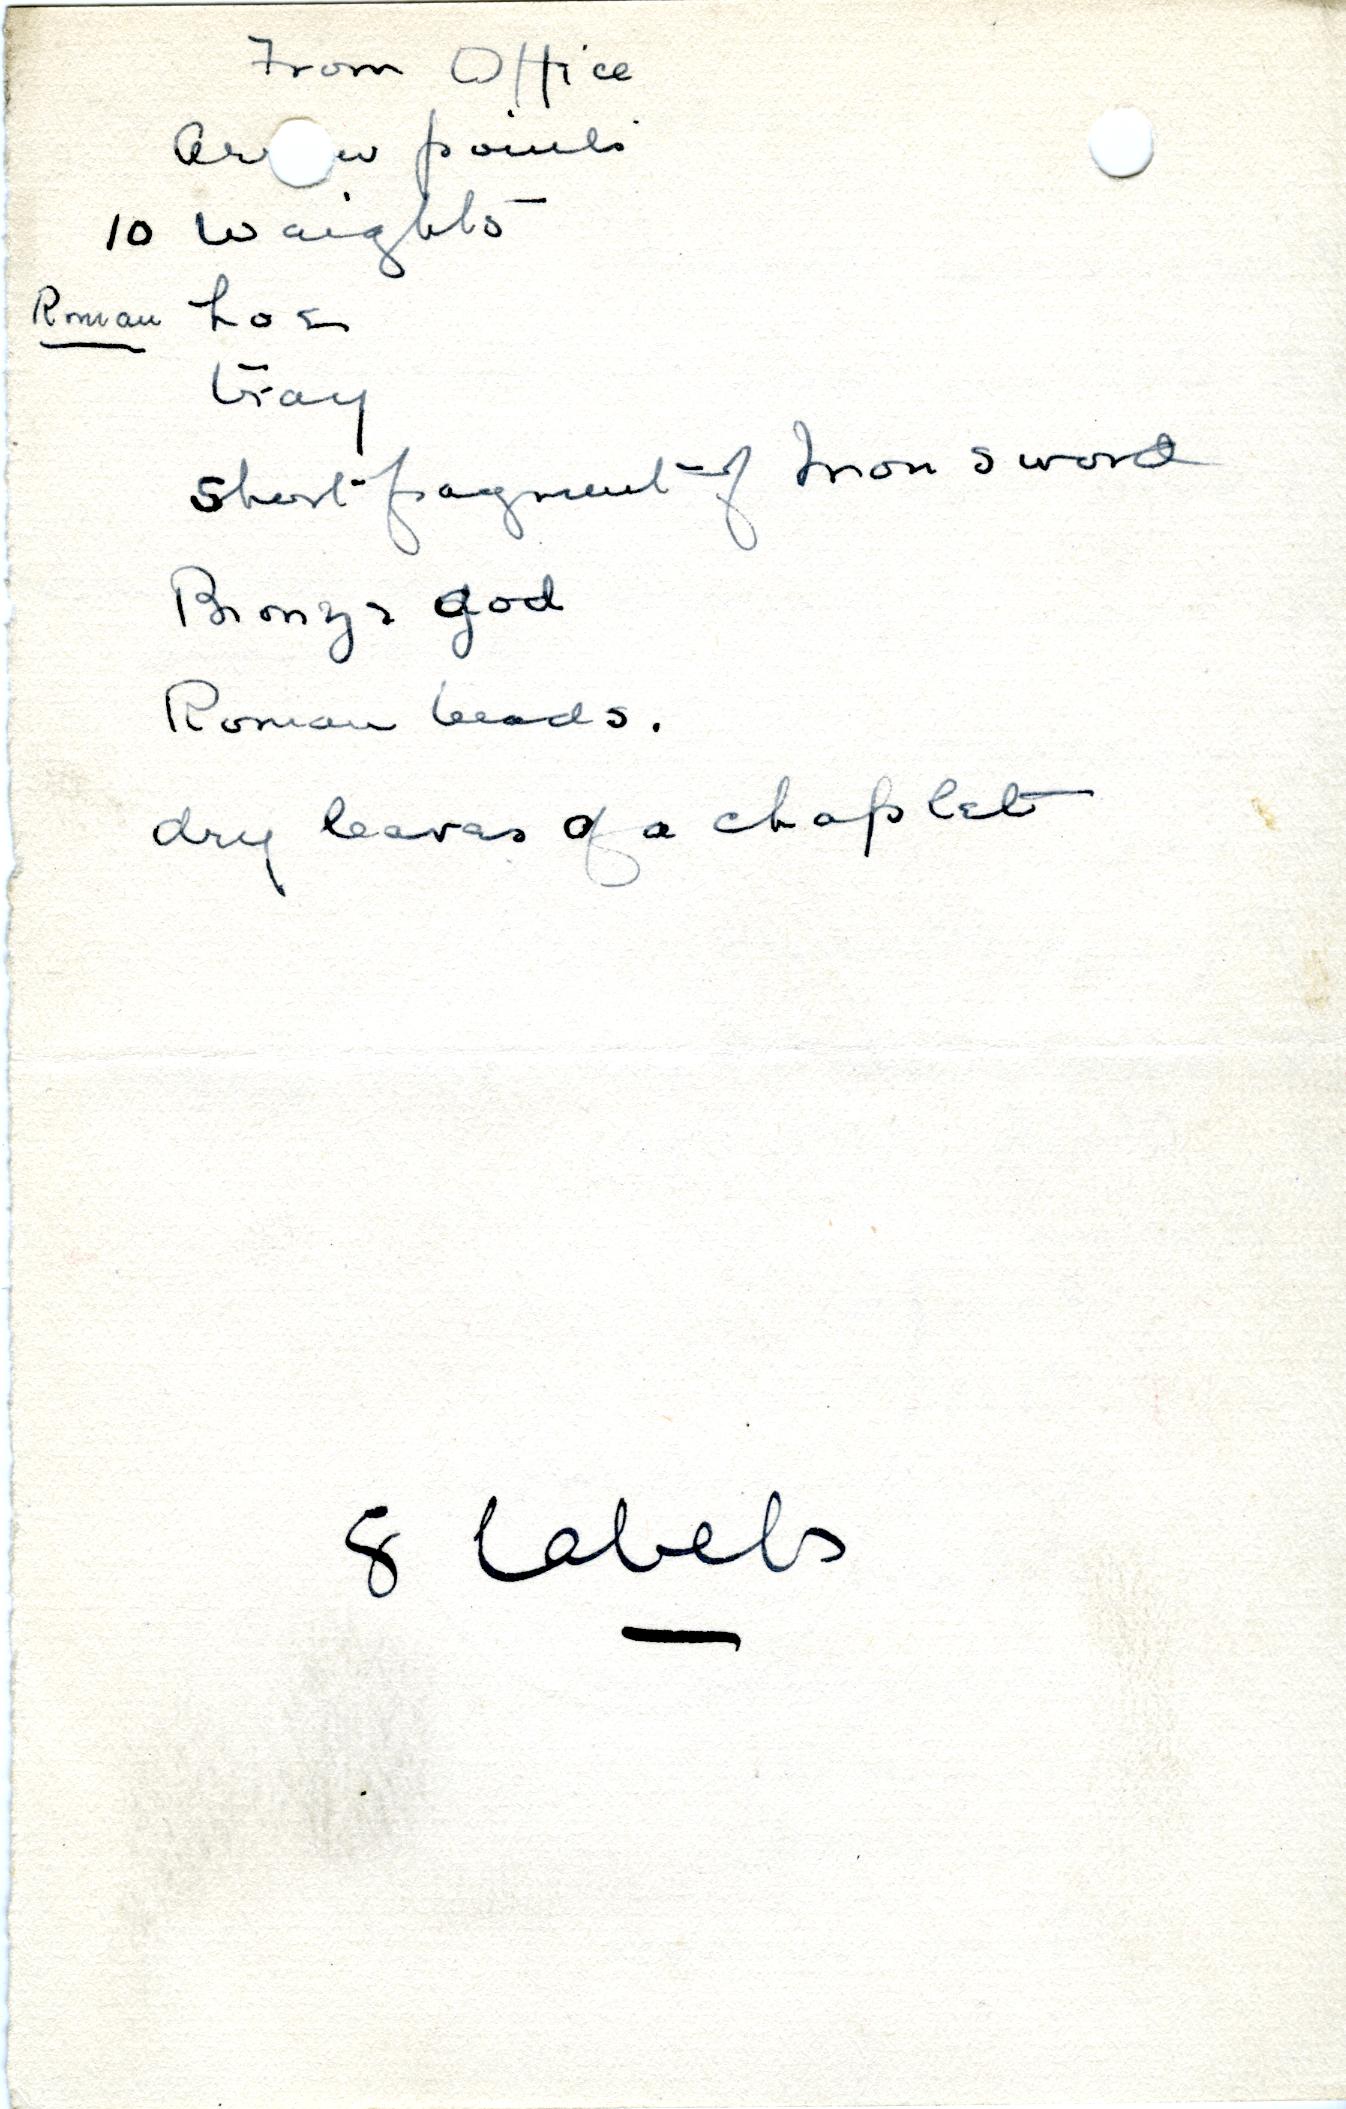 From Office
Arrow points
10 Waights
Roman hoe
tray
short fragment of Iron sword
Bronze god
Roman beads.
dry leaves of a chaplet
8 Labels